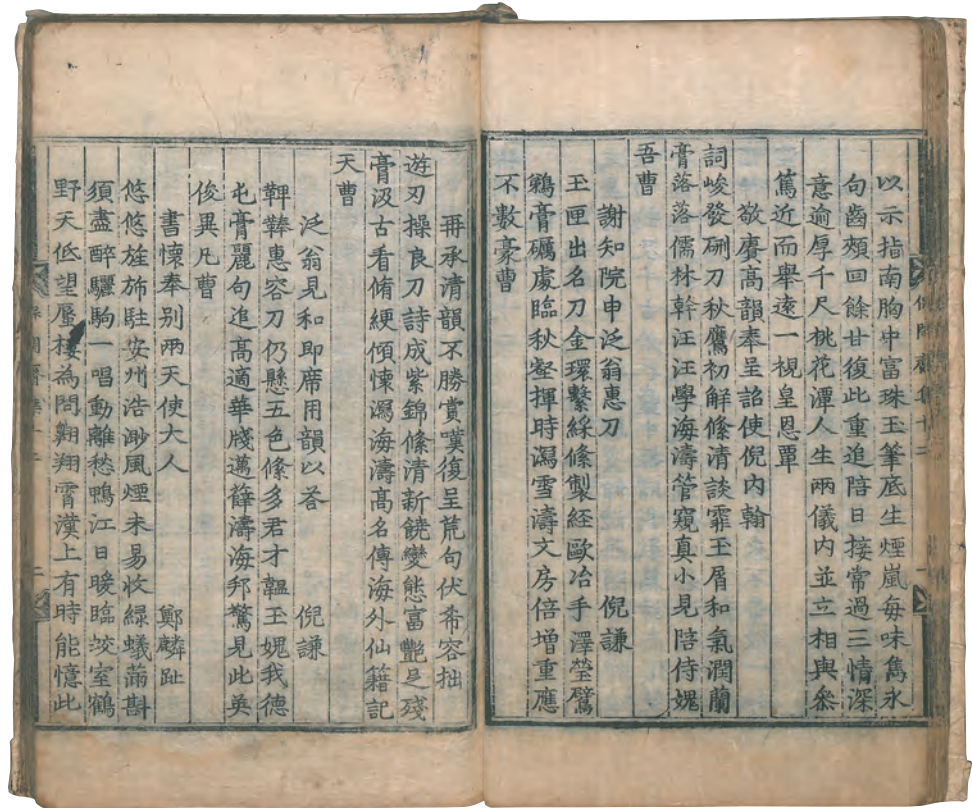 以示指南胸中富珠玉筆底生煙嵐每味雋永
句齒頰回餘甘復此重追陪日接常過三情深
意逾厚千尺桃花潭人生兩儀內並立相與叅
篤近而舉遠一視皇恩覃
敬賡高韻奉呈詔使倪內翰
詞峻發硎刀秋鷹初解絛清談霏玉屑和氣潤蘭
膏落落儒林幹汪汪學海濤管窺真小見陪侍媿
吾曹
謝知院申泛翁惠刀 倪謙
玉匣出名刀金環繫綵絛製経歐冶手澤瑩鷿
鷉膏礪處臨秋壑揮時濺雪濤文房倍增重應
不數豪曹
再承清韻不勝賞嘆復呈荒句伏希容拙
遊刃操良刀詩成紫錦絛清新饒變態富艷足殘
膏汲古看脩綆傾懷濺海濤高名傳海外仙籍記
天曹
泛翁見和即席用韻以荅 倪謙
鞞鞛惠容刀仍懸五色絛多君才韞玉媿我德
屯膏麗句追高適華牋邁薛濤海邦驚見此英
俊異凡曹
書懷奉别兩天使大人 鄭麟趾
悠悠旌斾駐安州浩渺風煙未易收緑蟻滿斟
須盡醉驪駒一唱動離愁鴨江日暖臨蛟室鶴
野天低望蜃樓為問翺翔霄漢上有時能憶此